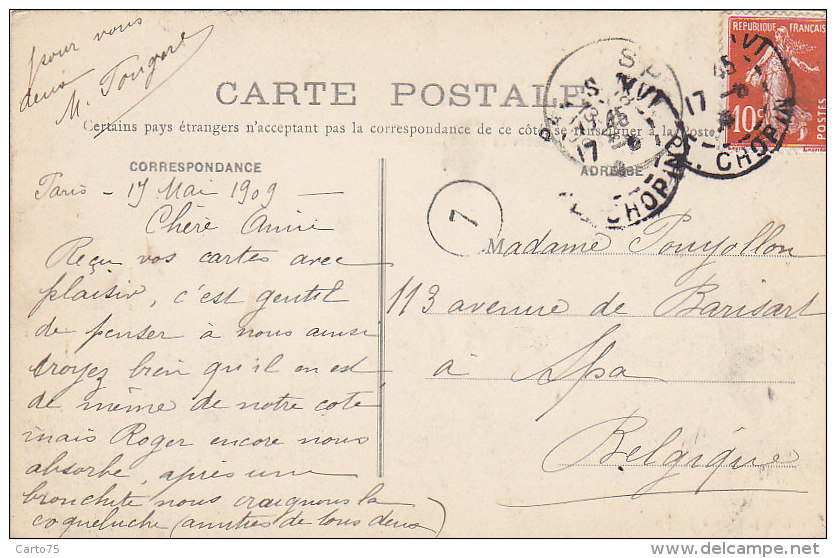 pour vous
deux
M. Tougard
CARTE POSTALE
Certains pays étrangers n'acceptant pas la correspondance de ce côté se renseigner à la Poste
CORRESPONDANCE
ADRESSE
Paris - 17 Mai 1909 -
Chère Amie
Reçu vos cartes avec
plaisir, c'est gentil
de penser à nous aussi
croyez bien qu'il en est
de même de notre coté
mais Roger encore nous
absorbe, après une
bronchite nous craignons la
coqueluche (amitiés de tous deux)
7
Madame Pouyollon
113 avenue de Barisart
à Spa
Belgique
REPUBLIQUE FRANÇAISE
10c
POSTES
PARIS XVI
17 - 5
R. CHOPIN
XVI
45
17
CHOPIN
Carto75
www.delcampe.net